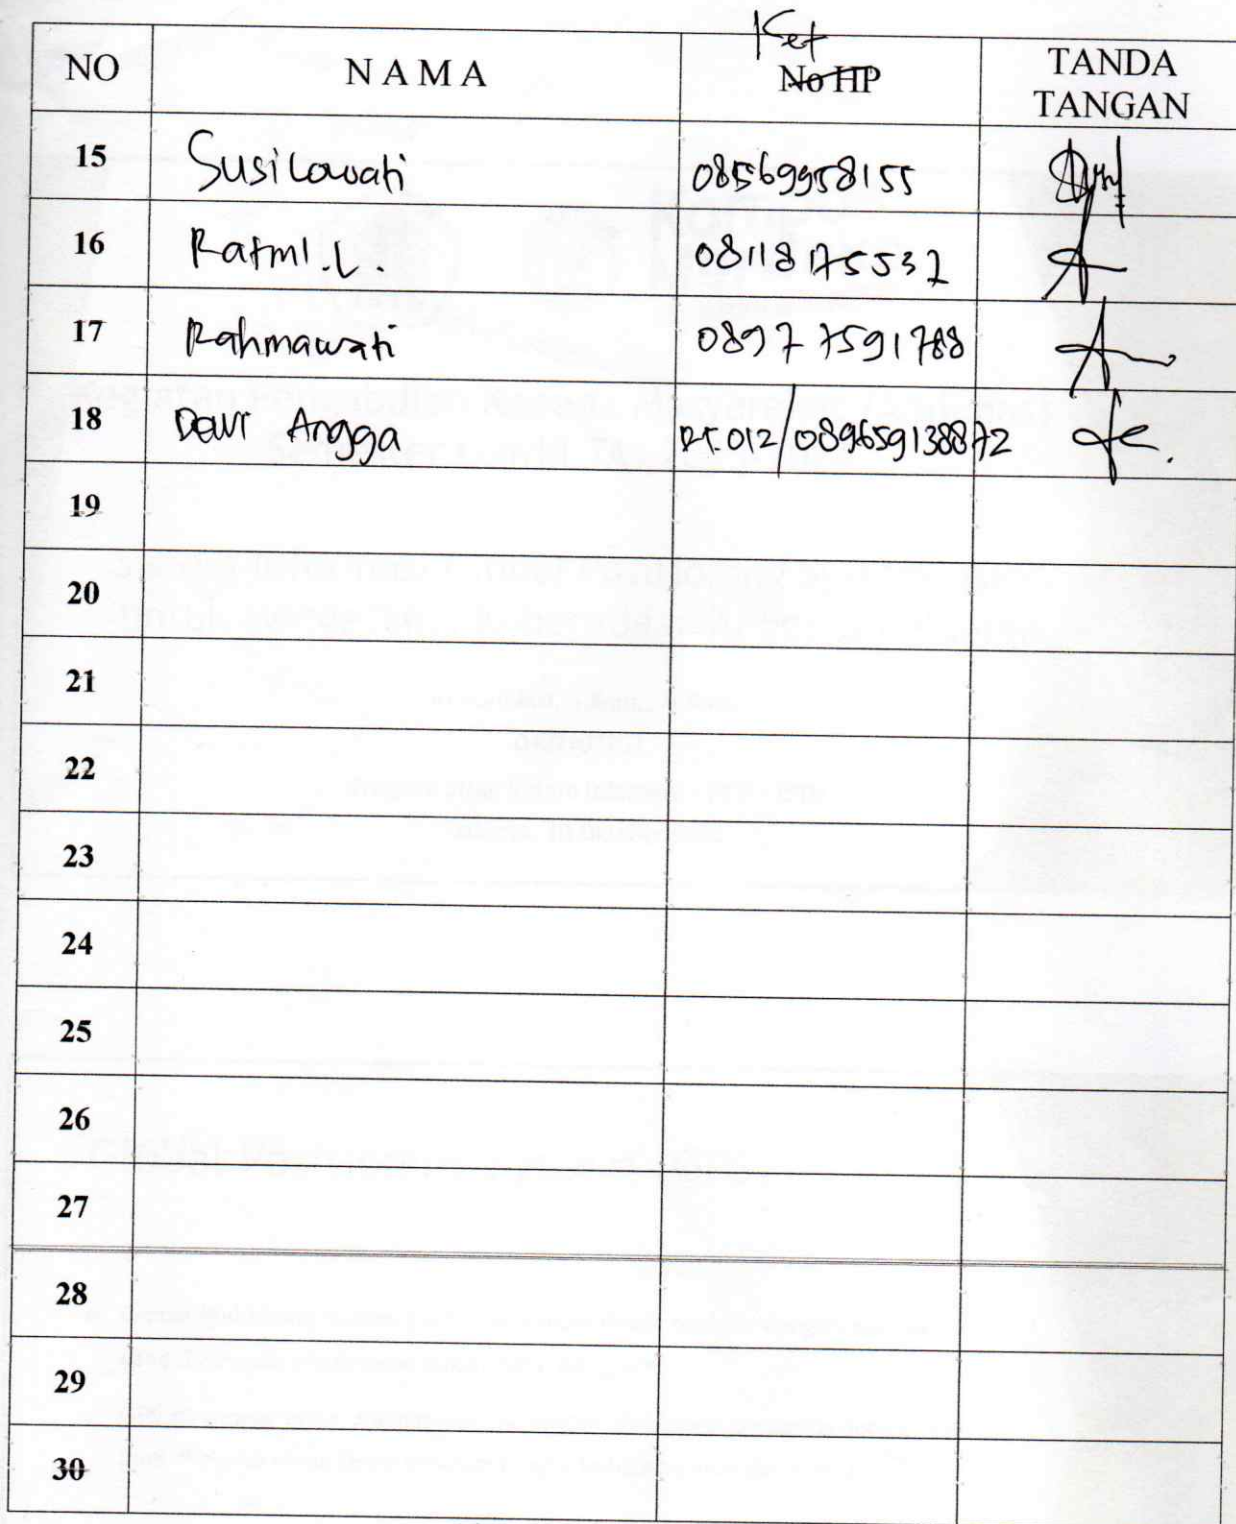 NO N A M A Ket No HP TANDA TANGAN
15 Susilowati 08569958155
16 Ratmi.L. 08118175537
17 Rahmawati 08977591788
18 Dewi Angga RT.012/089659138872
19
20
21
22
23
24
25
26
27
28
29
30